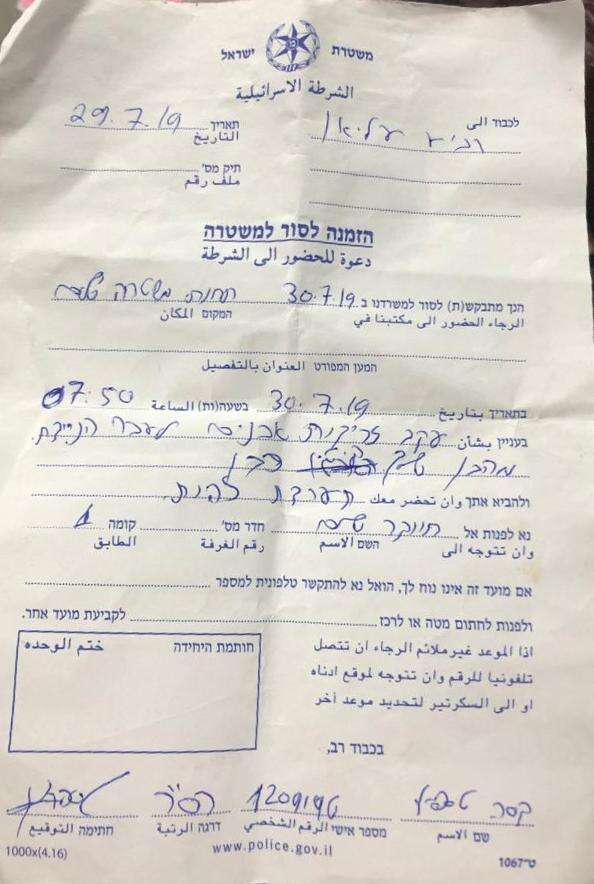 משטרת ישראל
الشرطة الاسرائيلية
לכבוד אל
תאריך 29.7.19
التاريخ
רביע עליאן
תיק מס'
ملف رقم
הזמנה לסור למשטרה
دعوة للحضور الى الشرطة
הנך מתבקש(ת) לסור למשרדנו ב 30.7.19 תחנת משטרה שלם
الرجاء الحضور الى مكتبنا في המקום المكان
המען המפורט العنوان بالتفصيل
בתאריך بتاريخ 30.7.19 בשעה(ות) الساعة 07:50
בעניין بشأن עקב זריקות אבנים לעבר הניידת
מהבן שלך הבן
ולהביא אתך وان تحضر معك תעודת זהות
נא לפנות אל חוקר שלם חדר מס' קומה 1
وان تتوجه الى השם الاسم رقم الغرفة الطابق
אם מועד זה אינו נוח לך, הואל נא להתקשר טלפונית למספר
ולפנות לחתום מטה או לרכז לקביעת מועד אחר.
اذا الموعد غير ملائم الرجاء ان تتصل
تلفونيا للرقم وان تتوجه لموقع ادناه
او الى السكرتير لتحديد موعد آخر
חותמת היחידה ختم الوحده
בכבוד רב,
1209196 רס"ר
שם الاسم מספר אישי الرقم الشخصي דרגה الرتبة חתימה التوقيع
1000x(4.16) www.police.gov.il ט-1067